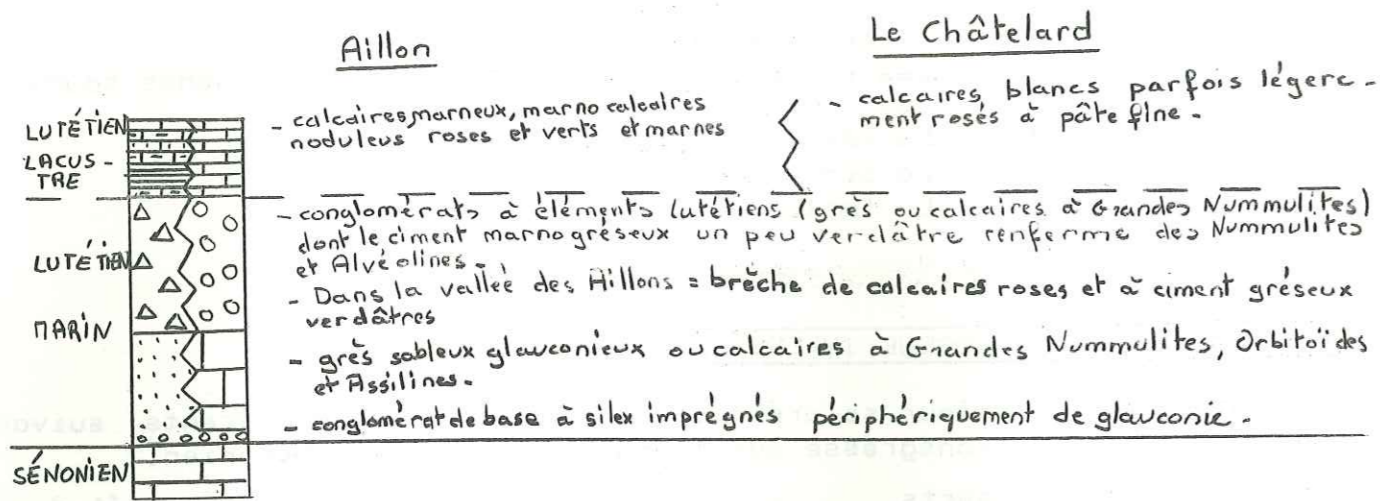 Aillon
Le Châtelard
LUTÉTIEN
LACUS-
TRE
- calcaires marneux, marno calcaires
noduleus roses et verts et marnes
- calcaires blancs parfois légere-
ment rosés à pâte fine.
LUTÉTIEN
MARIN
- conglomérats à éléments lutétiens (grès ou calcaires à Grandes Nummulites)
dont le ciment marnogréseux un peu verdâtre renferme des Nummulites
et Alvéolines.
- Dans la vallée des Aillons = brèche de calcaires roses et à ciment gréseux
verdâtres
- grès sableux glauconieux ou calcaires à Grandes Nummulites, Orbitoïdes
et Assilines.
- conglomérat de base à silex imprégnés périphériquement de glauconie.
SÉNONIEN